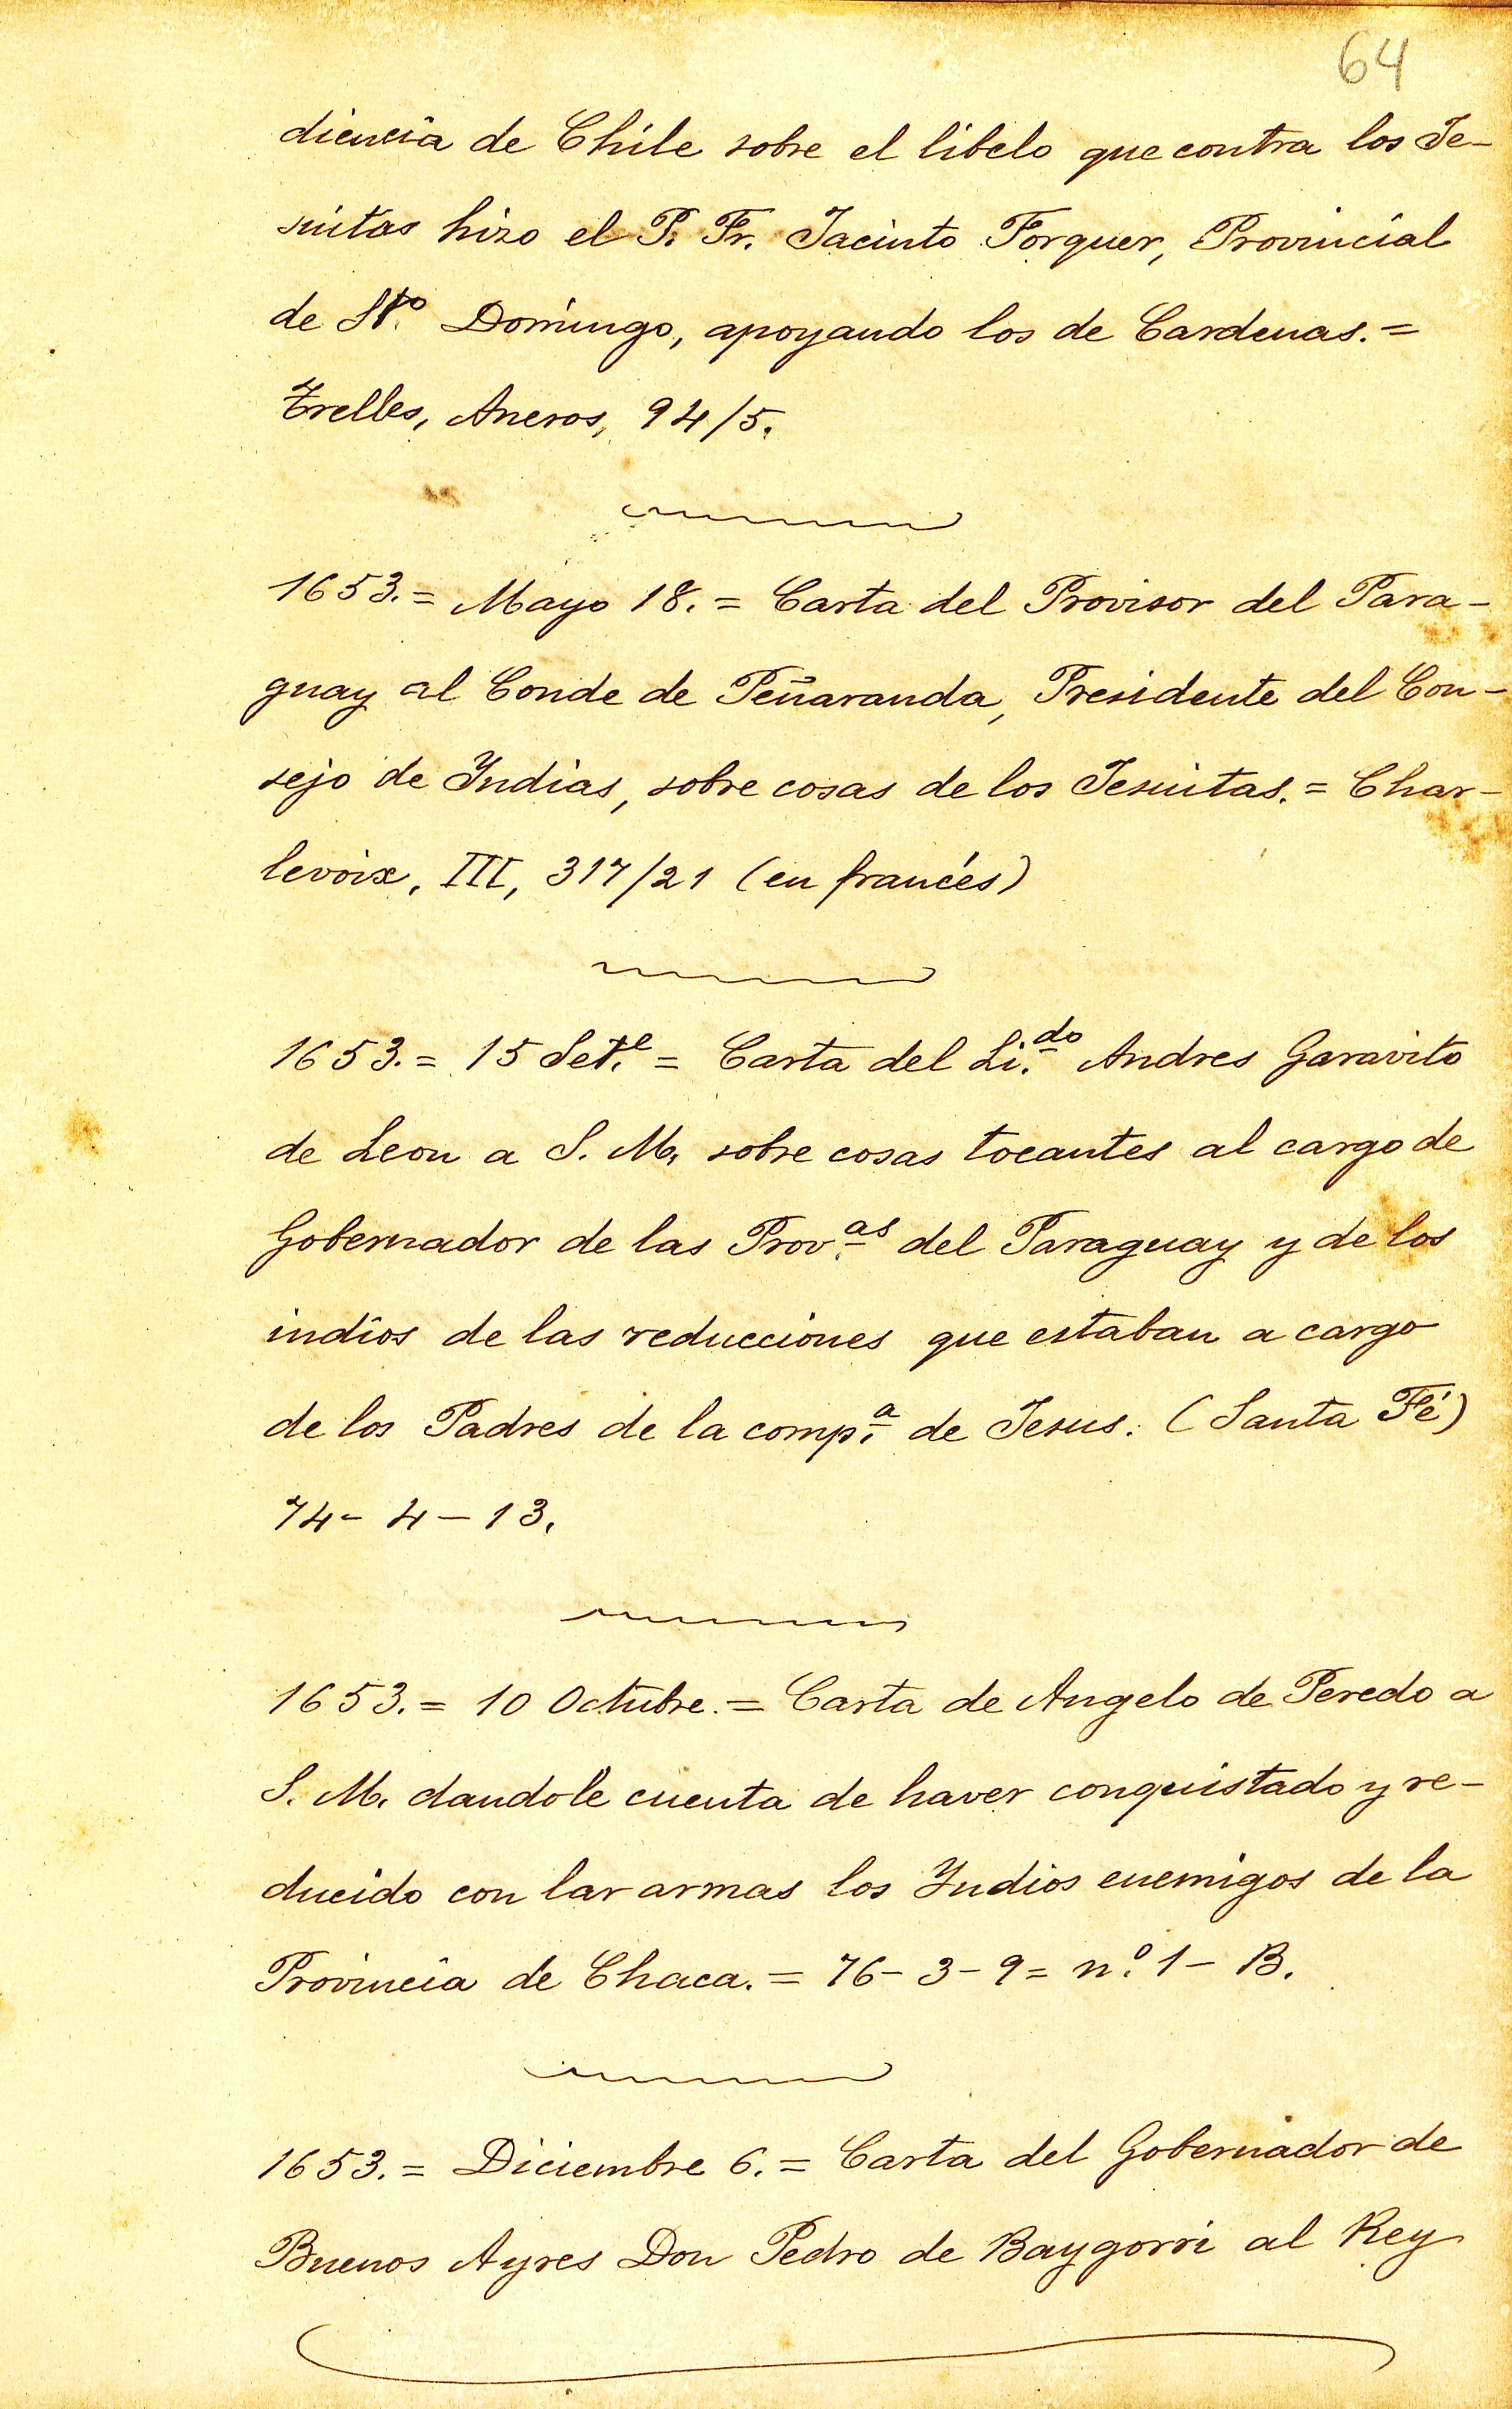 64
diencia de Chile sobre el libelo que contra los Je-
suitas hizo el P. Fr. Jacinto Forquer, Provincial
de Sto. Domingo, apoyando los de Cardenas. =
Trelles, Aneros, 94/5.
1653. = Mayo 18. = Carta del Provisor del Para-
guay al Conde de Peñaranda, Presidente del Con-
sejo de Indias, sobre cosas de los Jesuitas. = Char-
levoix, III, 317/21 (en francés)
1653. = 15 Set.e = Carta del Li.do Andres Garavito
de Leon a S. M. sobre cosas tocantes al cargo de
Gobernador de las Prov.as del Paraguay y de los
indios de las reducciones que estaban a cargo
de los Padres de la comp.a de Jesus. (Santa Fé)
74 - 4 - 13.
1653. = 10 Octubre. = Carta de Angelo de Peredo a
S. M. dandole cuenta de haver conquistado y re-
ducido con lar armas los Indios enemigos de la
Provincia de Chaca. = 76 - 3 - 9 = n.º 1 - B.
1653. = Diciembre 6. = Carta del Gobernador de
Buenos Ayres Don Pedro de Baygorri al Rey